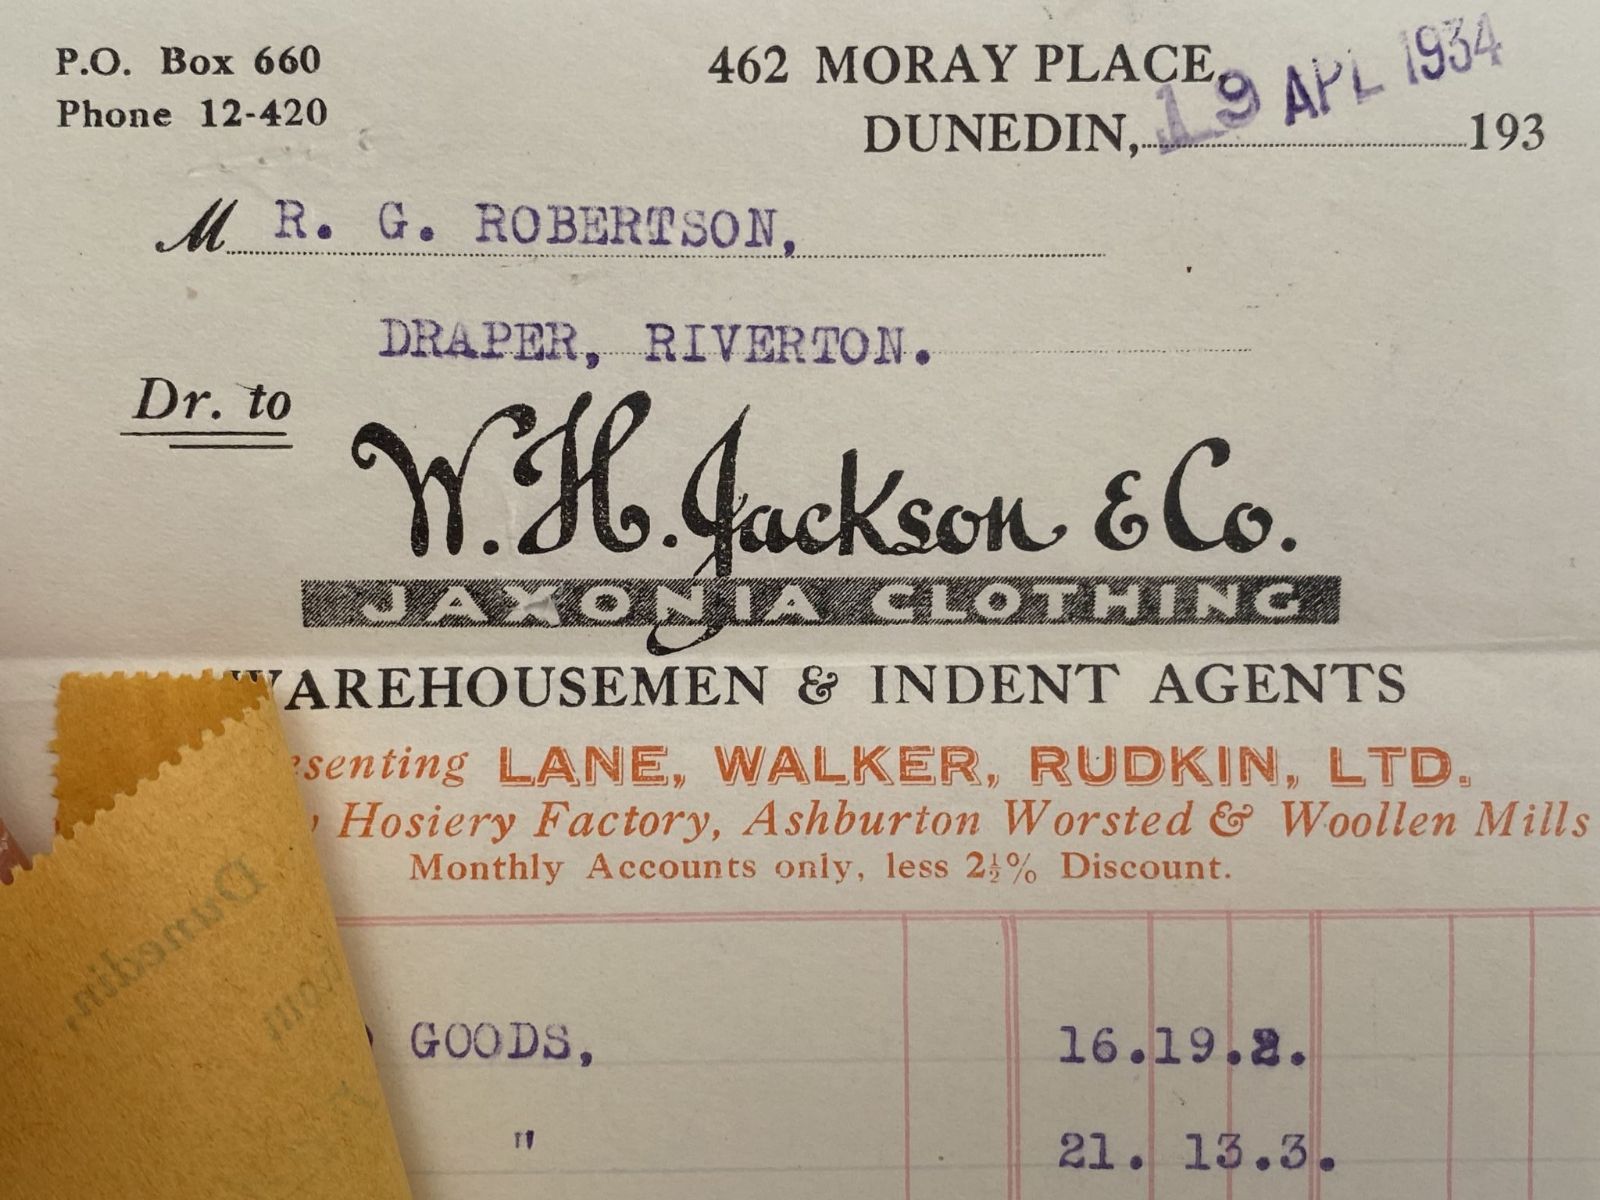 P.O. Box 660
Phone 12-420
462 MORAY PLACE,
DUNEDIN, 193
19 APL 1934
M R. G. ROBERTSON,
DRAPER, RIVERTON.
Dr. to
W. H. Jackson & Co.
JAXONIA CLOTHING
WAREHOUSEMEN & INDENT AGENTS
LANE, WALKER, RUDKIN, LTD.
Hosiery Factory, Ashburton Worsted & Woollen Mills
Monthly Accounts only, less 2½% Discount.
GOODS, 16.19.
" 21. 13.3.
Dunedin,